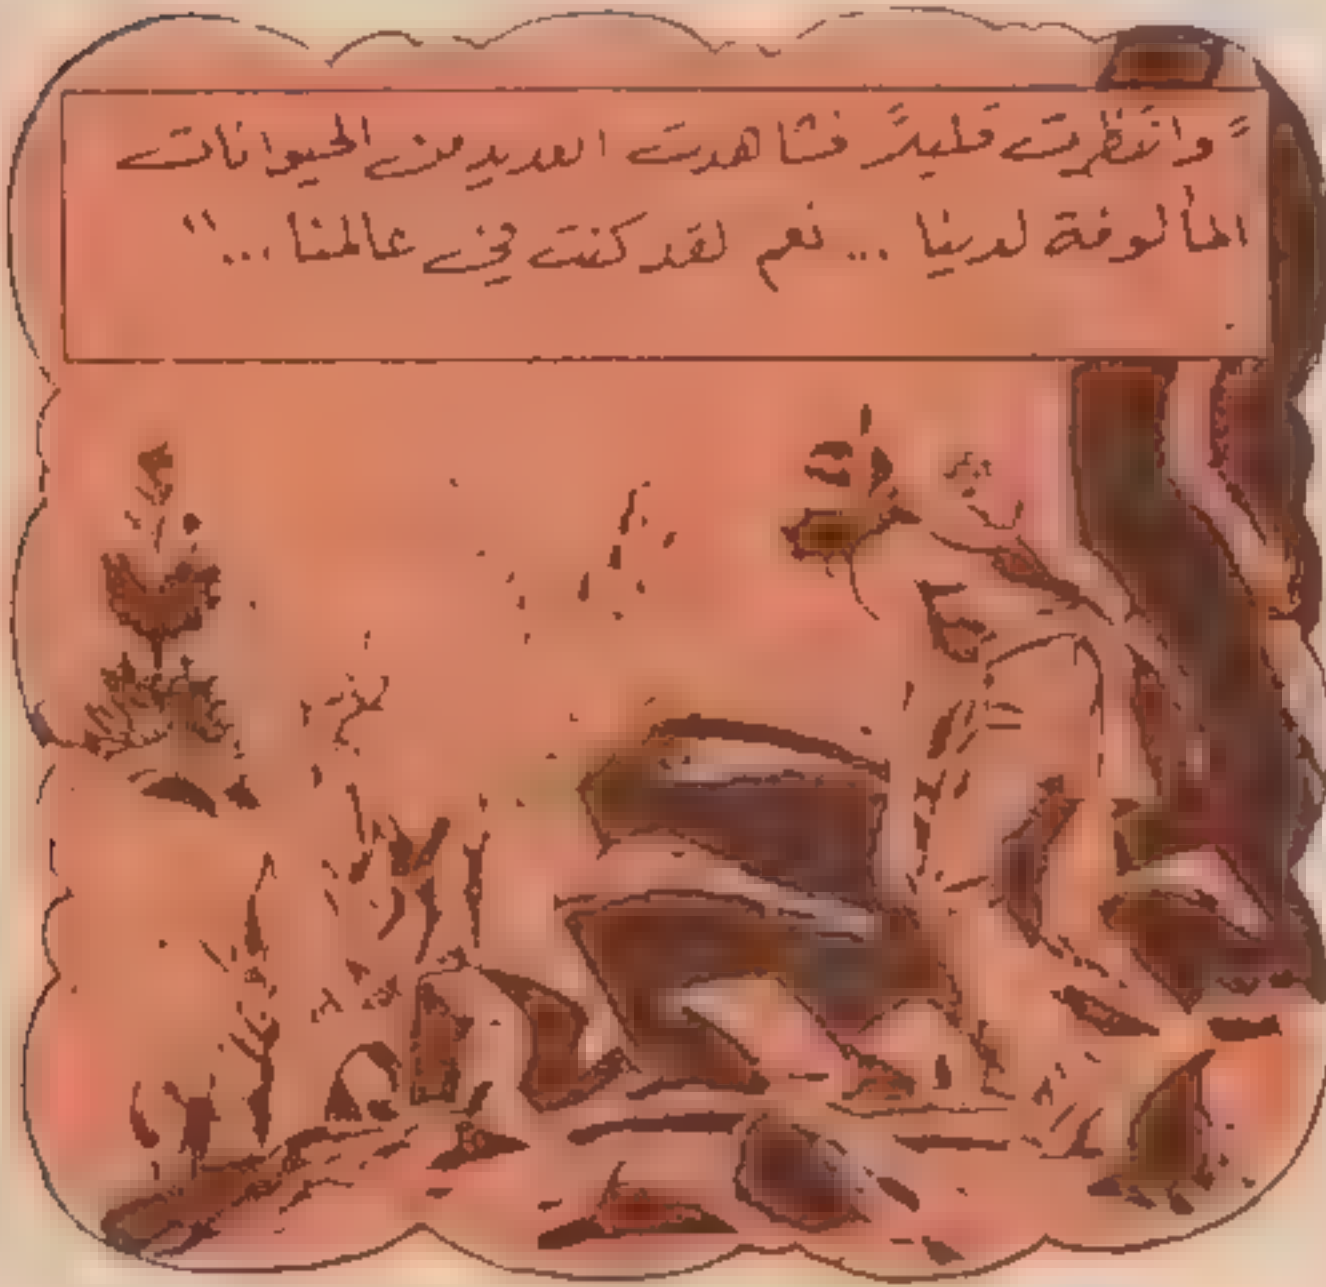 "وانتظرت قليلاً فشاهدت العديد من الحيوانات
المألوفة لدينا ... نعم لقد كنت في عالمنا ..."